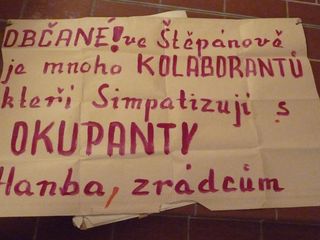 OBČANÉ! ve Štěpánově
je mnoho KOLABORANTŮ
kteří Simpatizují s
OKUPANTY
Hanba, zrádcům